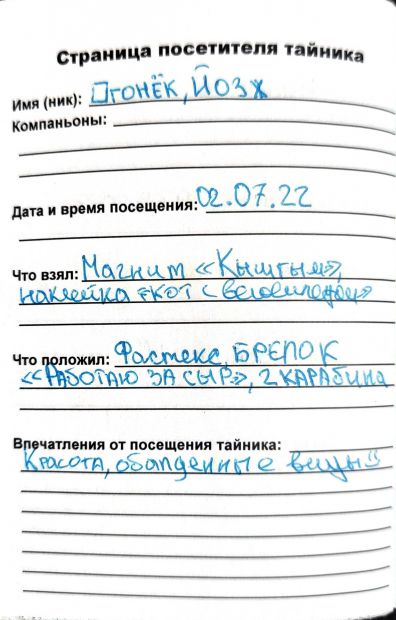 Страница посетителя тайника
Имя (ник): Огонёк, Йозж
Компаньоны:
Дата и время посещения: 02.07.22
Что взял: Магнит «Кыштым»,
наклейка «кот с велосипедом»
Что положил: Фастекс, БРЕЛОК
«РАБОТАЮ ЗА СЫР», 2 КАРАБИНА
Впечатления от посещения тайника:
Красота, обалденные виды